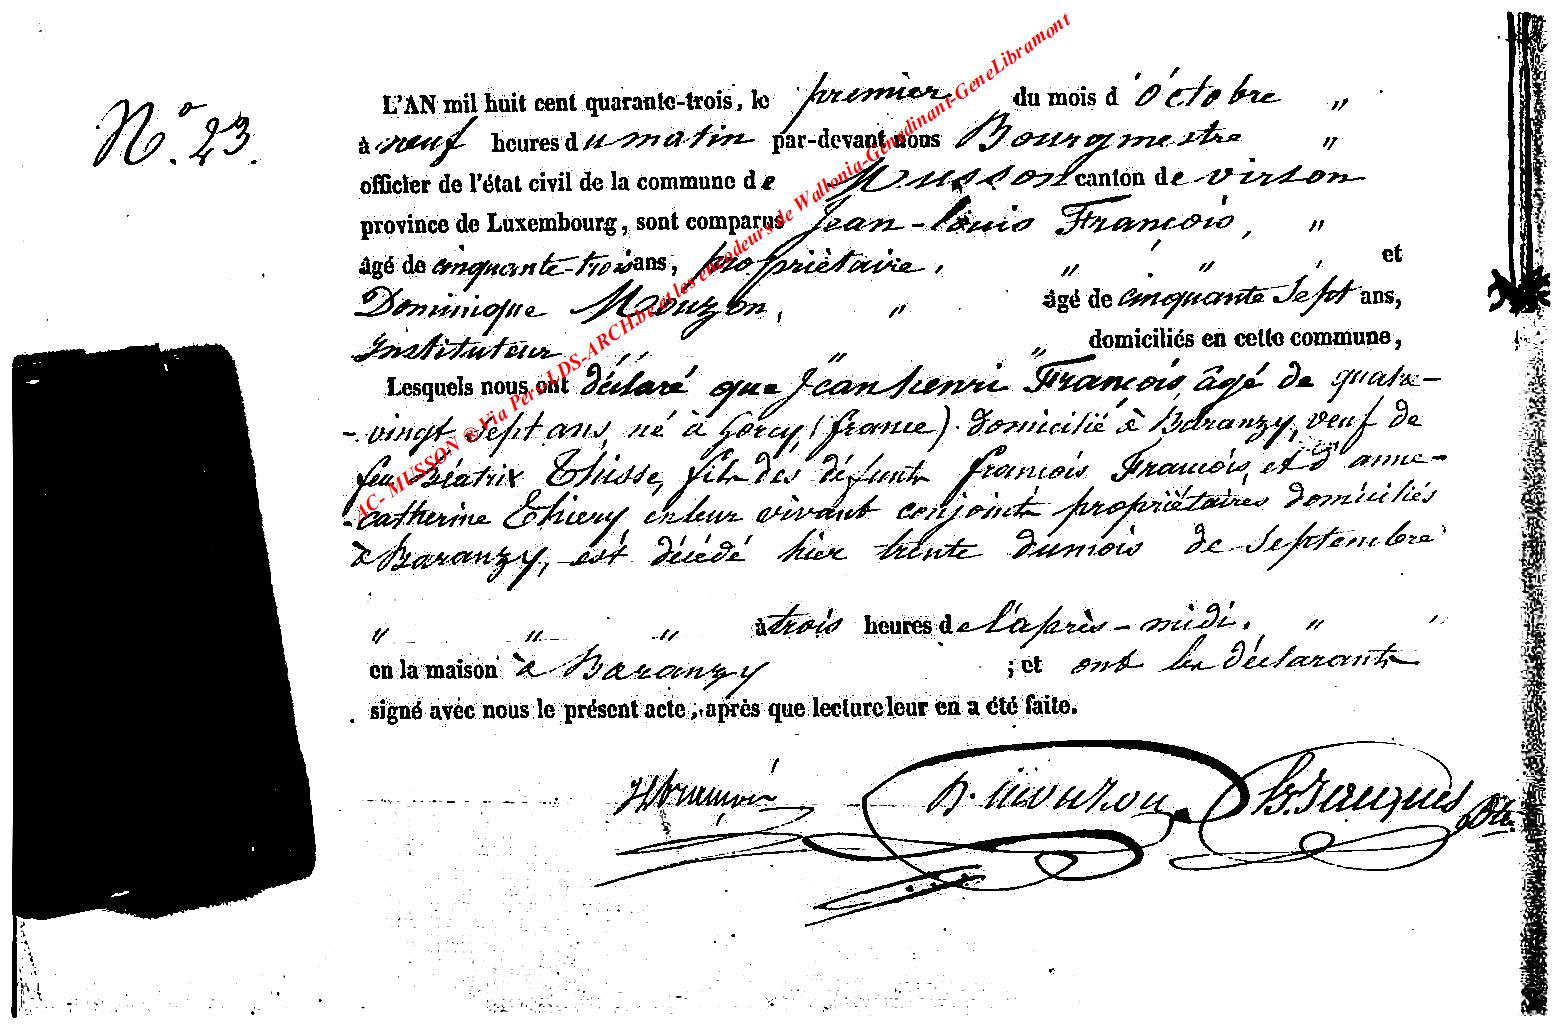 N.o 23.
L'AN mil huit cent quarante-trois, le premier du mois d'octobre "
à neuf heures du matin par-devant nous Bourgmestre "
officier de l'état civil de la commune de Musson canton de virton
province de Luxembourg, sont comparus Jean-louis François, "
âgé de cinquante-trois ans, propriétaire, " " et
Dominique Mouzon, " âgé de cinquante sept ans,
instituteur " " " domiciliés en cette commune,
Lesquels nous ont déclaré que Jean henri François, âgé de quatre-
-vingt sept ans, né à Gorcy (france). domicilié à Baranzy, veuf de
feu Béatrix Thisse, fils des défunts françois François, et d'anne-
-catherine Thiery en leur vivant conjoints propriétaires domiciliés
à Baranzy, est décédé hier trente du mois de Septembre
" " " à trois heures de l'après-midi. " "
en la maison à Baranzy ; et ont les déclarants
signé avec nous le présent acte, après que lecture leur en a été faite.
D. Mouzon
AC- MUSSON ® Via Pers LDS-ARCH.be et les encodeurs de Wallonia-Genedinant-GeneLibramont